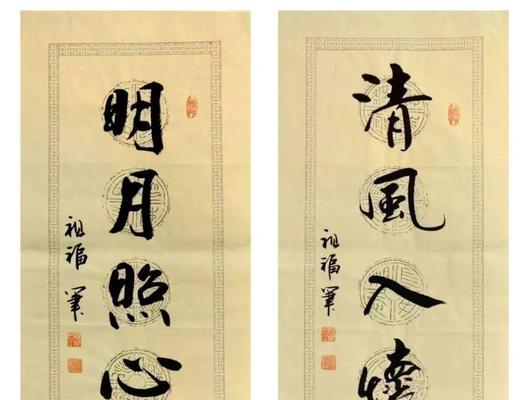 清風入懷
祖福筆
明月照心
祖福筆